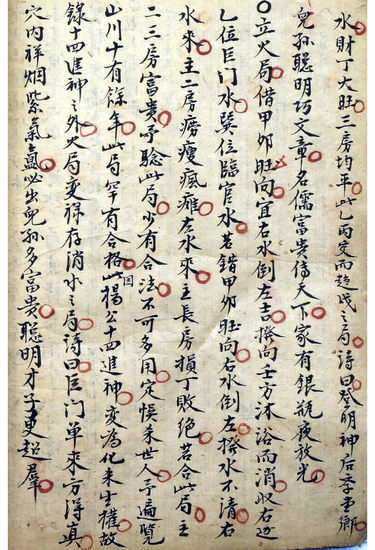 水財丁大旺三房均平此乙丙交而趋戌之局詩曰登明神后夲堂卿
兒孫聰明巧文章名儒富貴傳天下家有銀瓶夜放光
○立火局借甲卯旺向宜右水倒左吉撥向壬方沐浴而消收右边
乙位巨门水巽位臨官水若錯甲卯旺向右水倒左撥水不清右
水來主二房癆瘦瘋癱左水來主長房損丁敗絶若合此局主
二三房富貴予驗此局少有合法不可多用定悮杀世人予遍覽
山川十有餘年此局罕有合格此楊公十四進神变為化杀生權故
錄十四進神之外火局变祿存消水之局詩曰巨门單来方浔真
穴内祥烟紫氣氲必出兒孫多富貴聰明才子更超羣